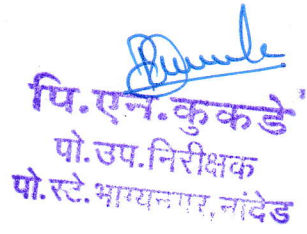 पि.एन.कुकडे
पो.उप.निरीक्षक
पो.स्टे.भाग्यनगर,नांदेड